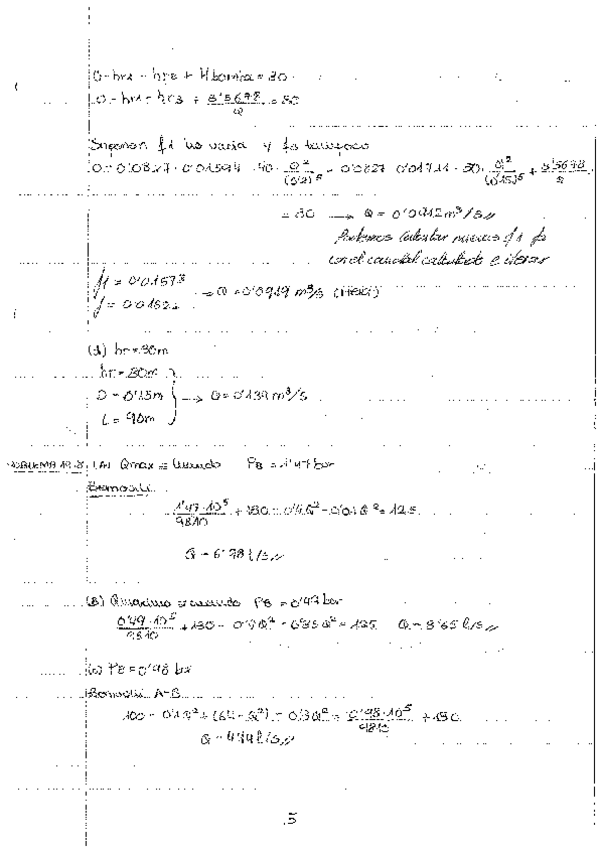 0 - hr1 - hr3 + Hbomba = 30
0 - hr1 - hr3 + 8'5678/Q = 30
Suponer f1 no varia y f3 tampoco
0 - 0'0827 · 0'01594 · 40 · Q²/(0'2)⁵ - 0'0827 · 0'01711 · 90 · Q²/(0'15)⁵ + 8'5678/Q
= 30 → Q = 0'0912 m³/s //
Podemos calcular nuevas f1 f3
con el caudal calculado e iterar
f1 = 0'01578
f = 0'01822 → Q = 0'0919 m³/s
(d) hr = 30m
hr = 30m
D = 0'15m → Q = 0'139 m³/s
L = 90m
PROBLEMA (A) Qmax cuando PB = 1'47 bar
Bernoulli
1'47·10⁵/9810 + 130 - 0'4Q² - 0'01Q² = 125
Q = 6'98 l/s //
(B) Q maximo cuando PB = 0'49 bar
0'49·10⁵/9810 + 130 - Q² = 125 Q = 3'65 l/s //
(c) PB = 0'98 bar
Bernoulli A-B
100 - 0'1Q² + (64 - Q²) - 0'3Q² = 0'98·10⁵/9810 + 130
Q = l/s //
5